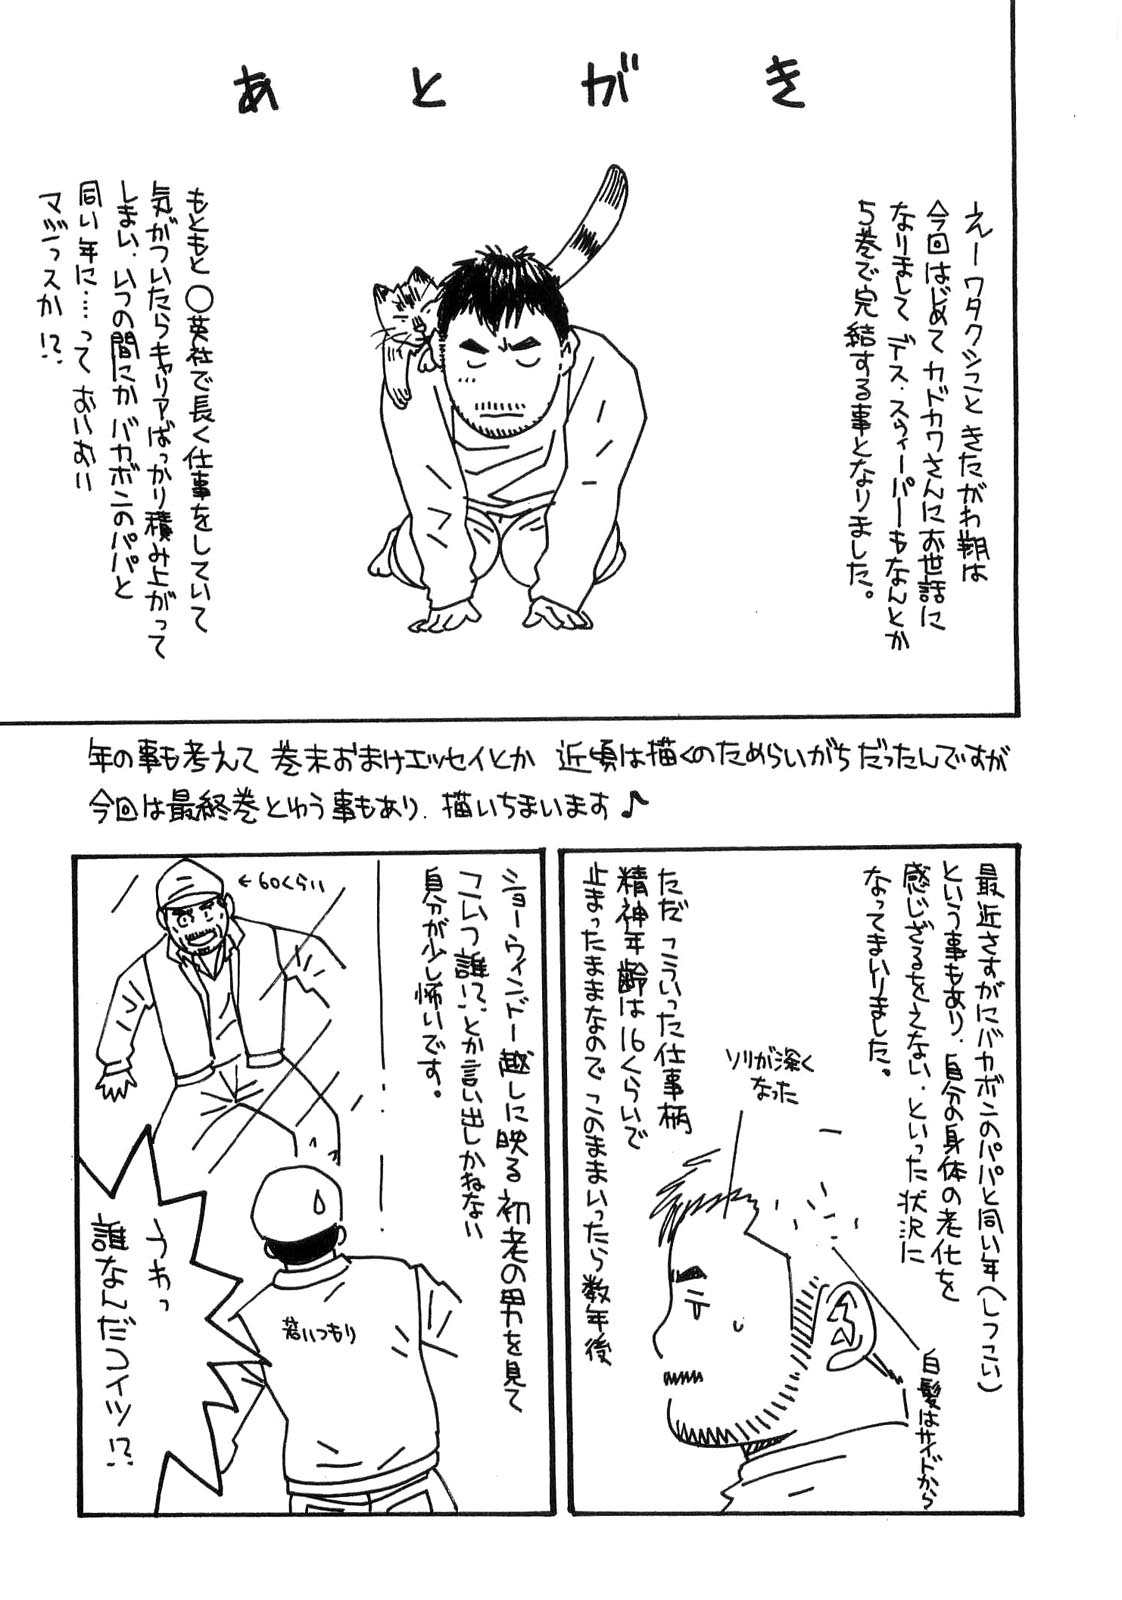 あとがき
えーワタクシこと きたがわ翔は
今回はじめてカドカワさんにお世話に
なりまして デス・スウィーパーもなんとか
5巻で完結する事となりました。
もともと〇英社で長く仕事をしていて
気がついたらキャリアばっかり積み上がって
しまい、いつの間にかバカボンのパパと
同い年に……って おいおい
マジっスか!?
年の事も考えて 巻末おまけエッセイとか 近頃は描くのためらいがちだったんですが
今回は最終巻とゆう事もあり、描いちまいます♪
最近さすがにバカボンのパパと同い年(しつこい)
という事もあり、自分の身体の老化を
感じざるをえない、といった状況に
なってまいりました。
ソリが深く
なった
白髪はサイドから
ただ こういった仕事柄
精神年齢は16くらいで
止まったままなので このままいったら数年後
ショーウィンドー越しに映る 初老の男を見て
こいつ誰!?、とか言い出しかねない
自分が少し怖いです。
←60くらい
若いつもり
うわっ
誰なんだコイツ!?